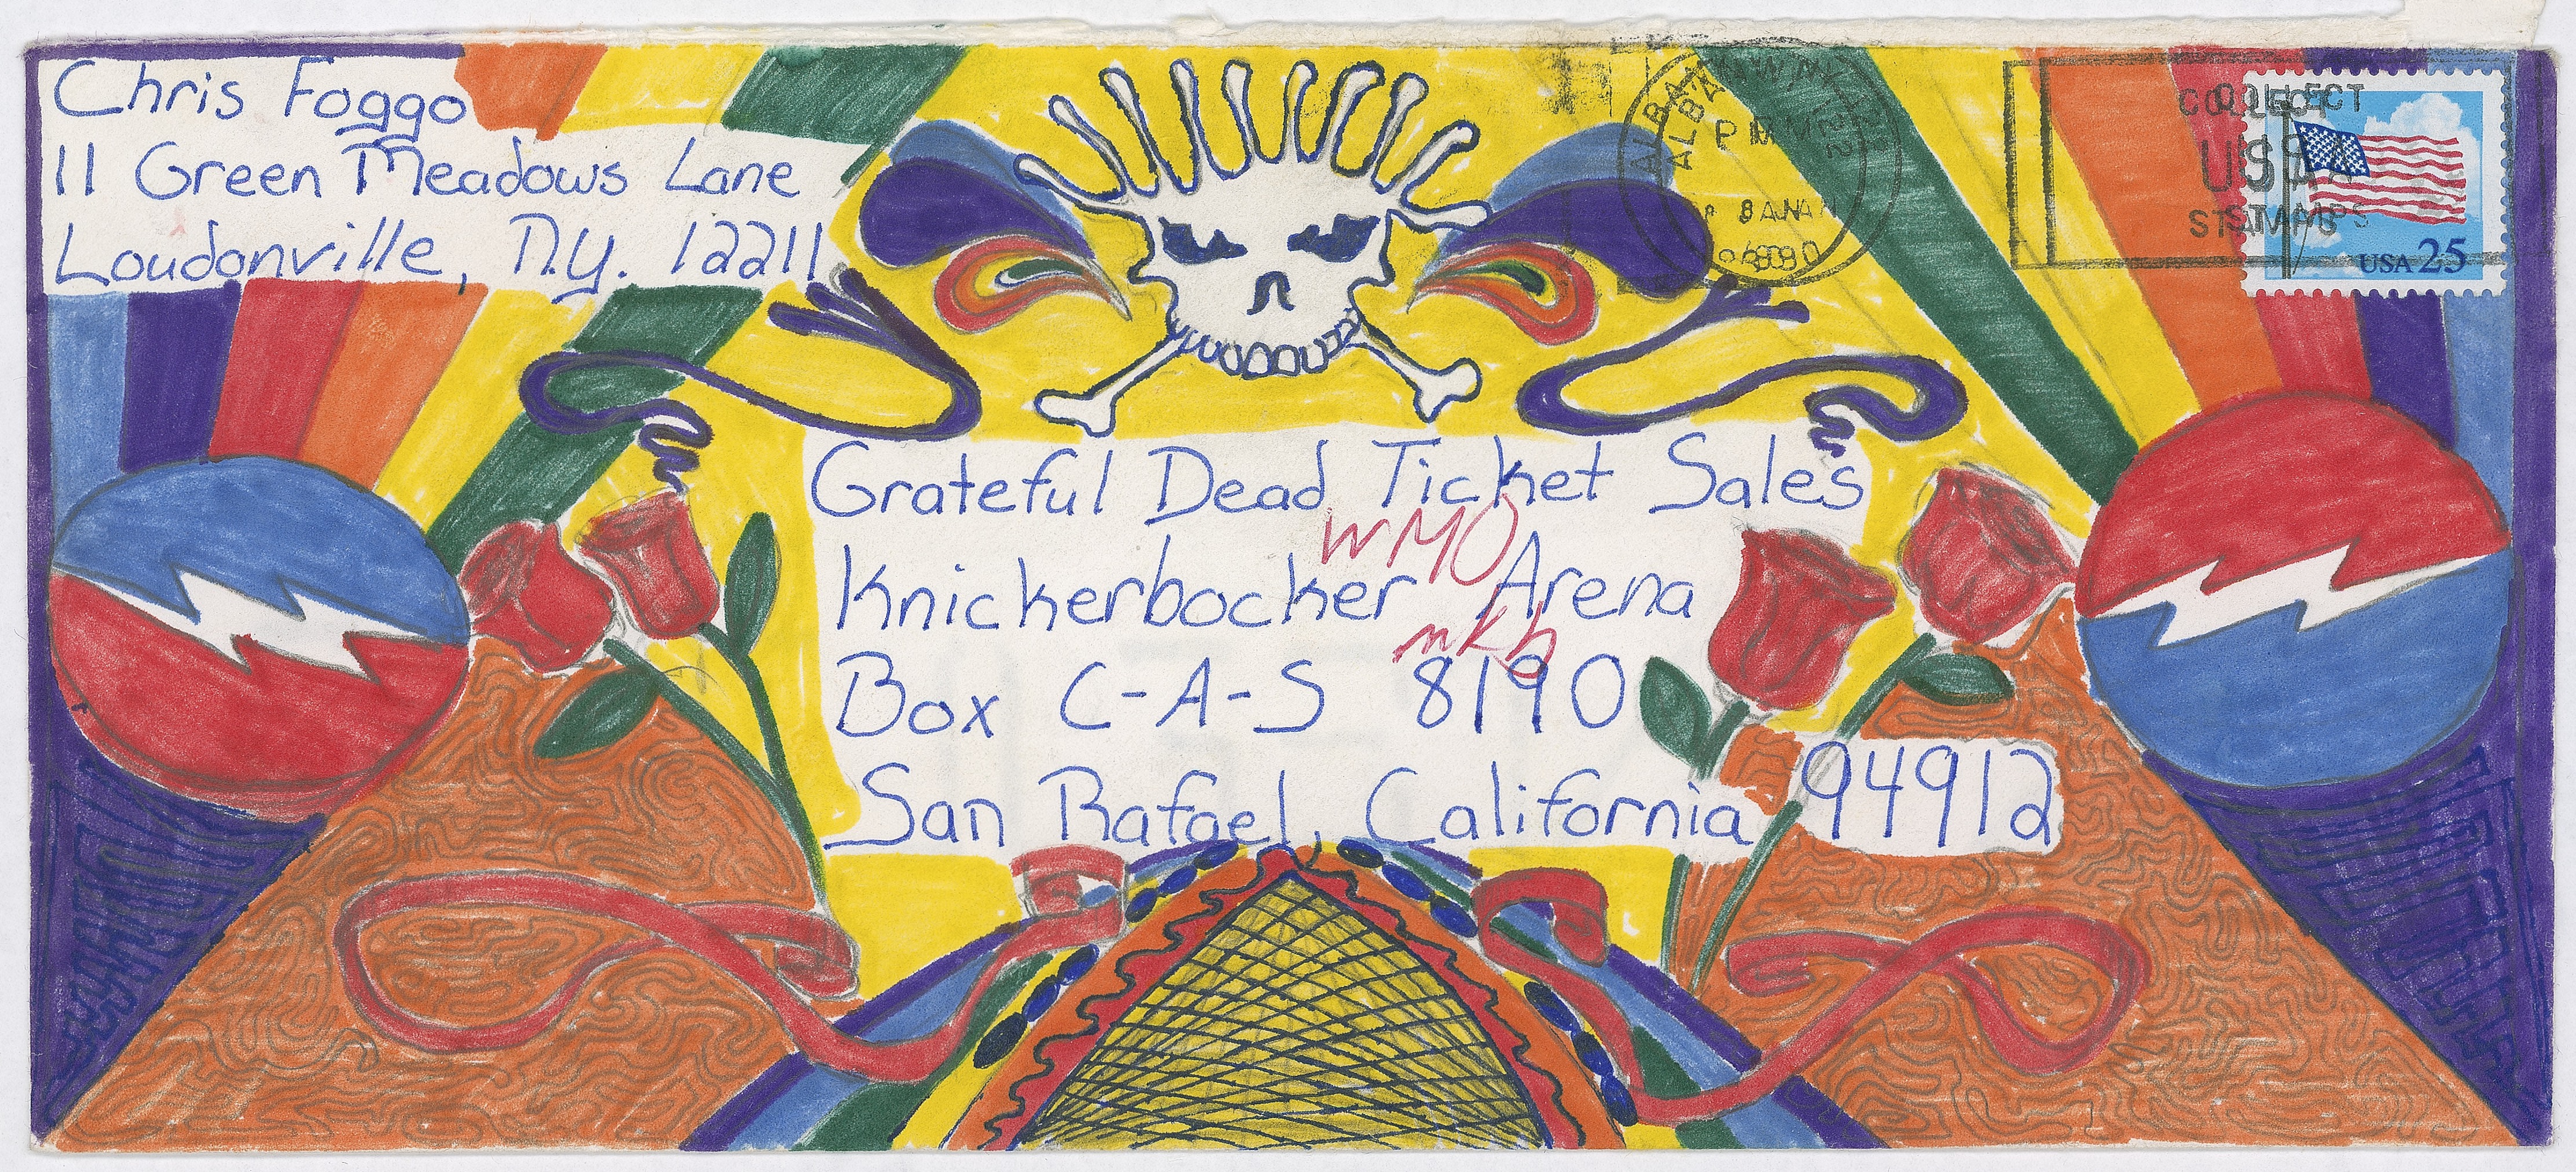 Chris Foggo
11 Green Meadows Lane
Loudonville, N.Y. 12211
ALBANY NY 122
PM
COLLECT
USA
STAMPS
USA 25
Grateful Dead Ticket Sales
WMO
Knickerbocker Arena
mRh
Box C-A-S 8190
San Rafael, California 94912